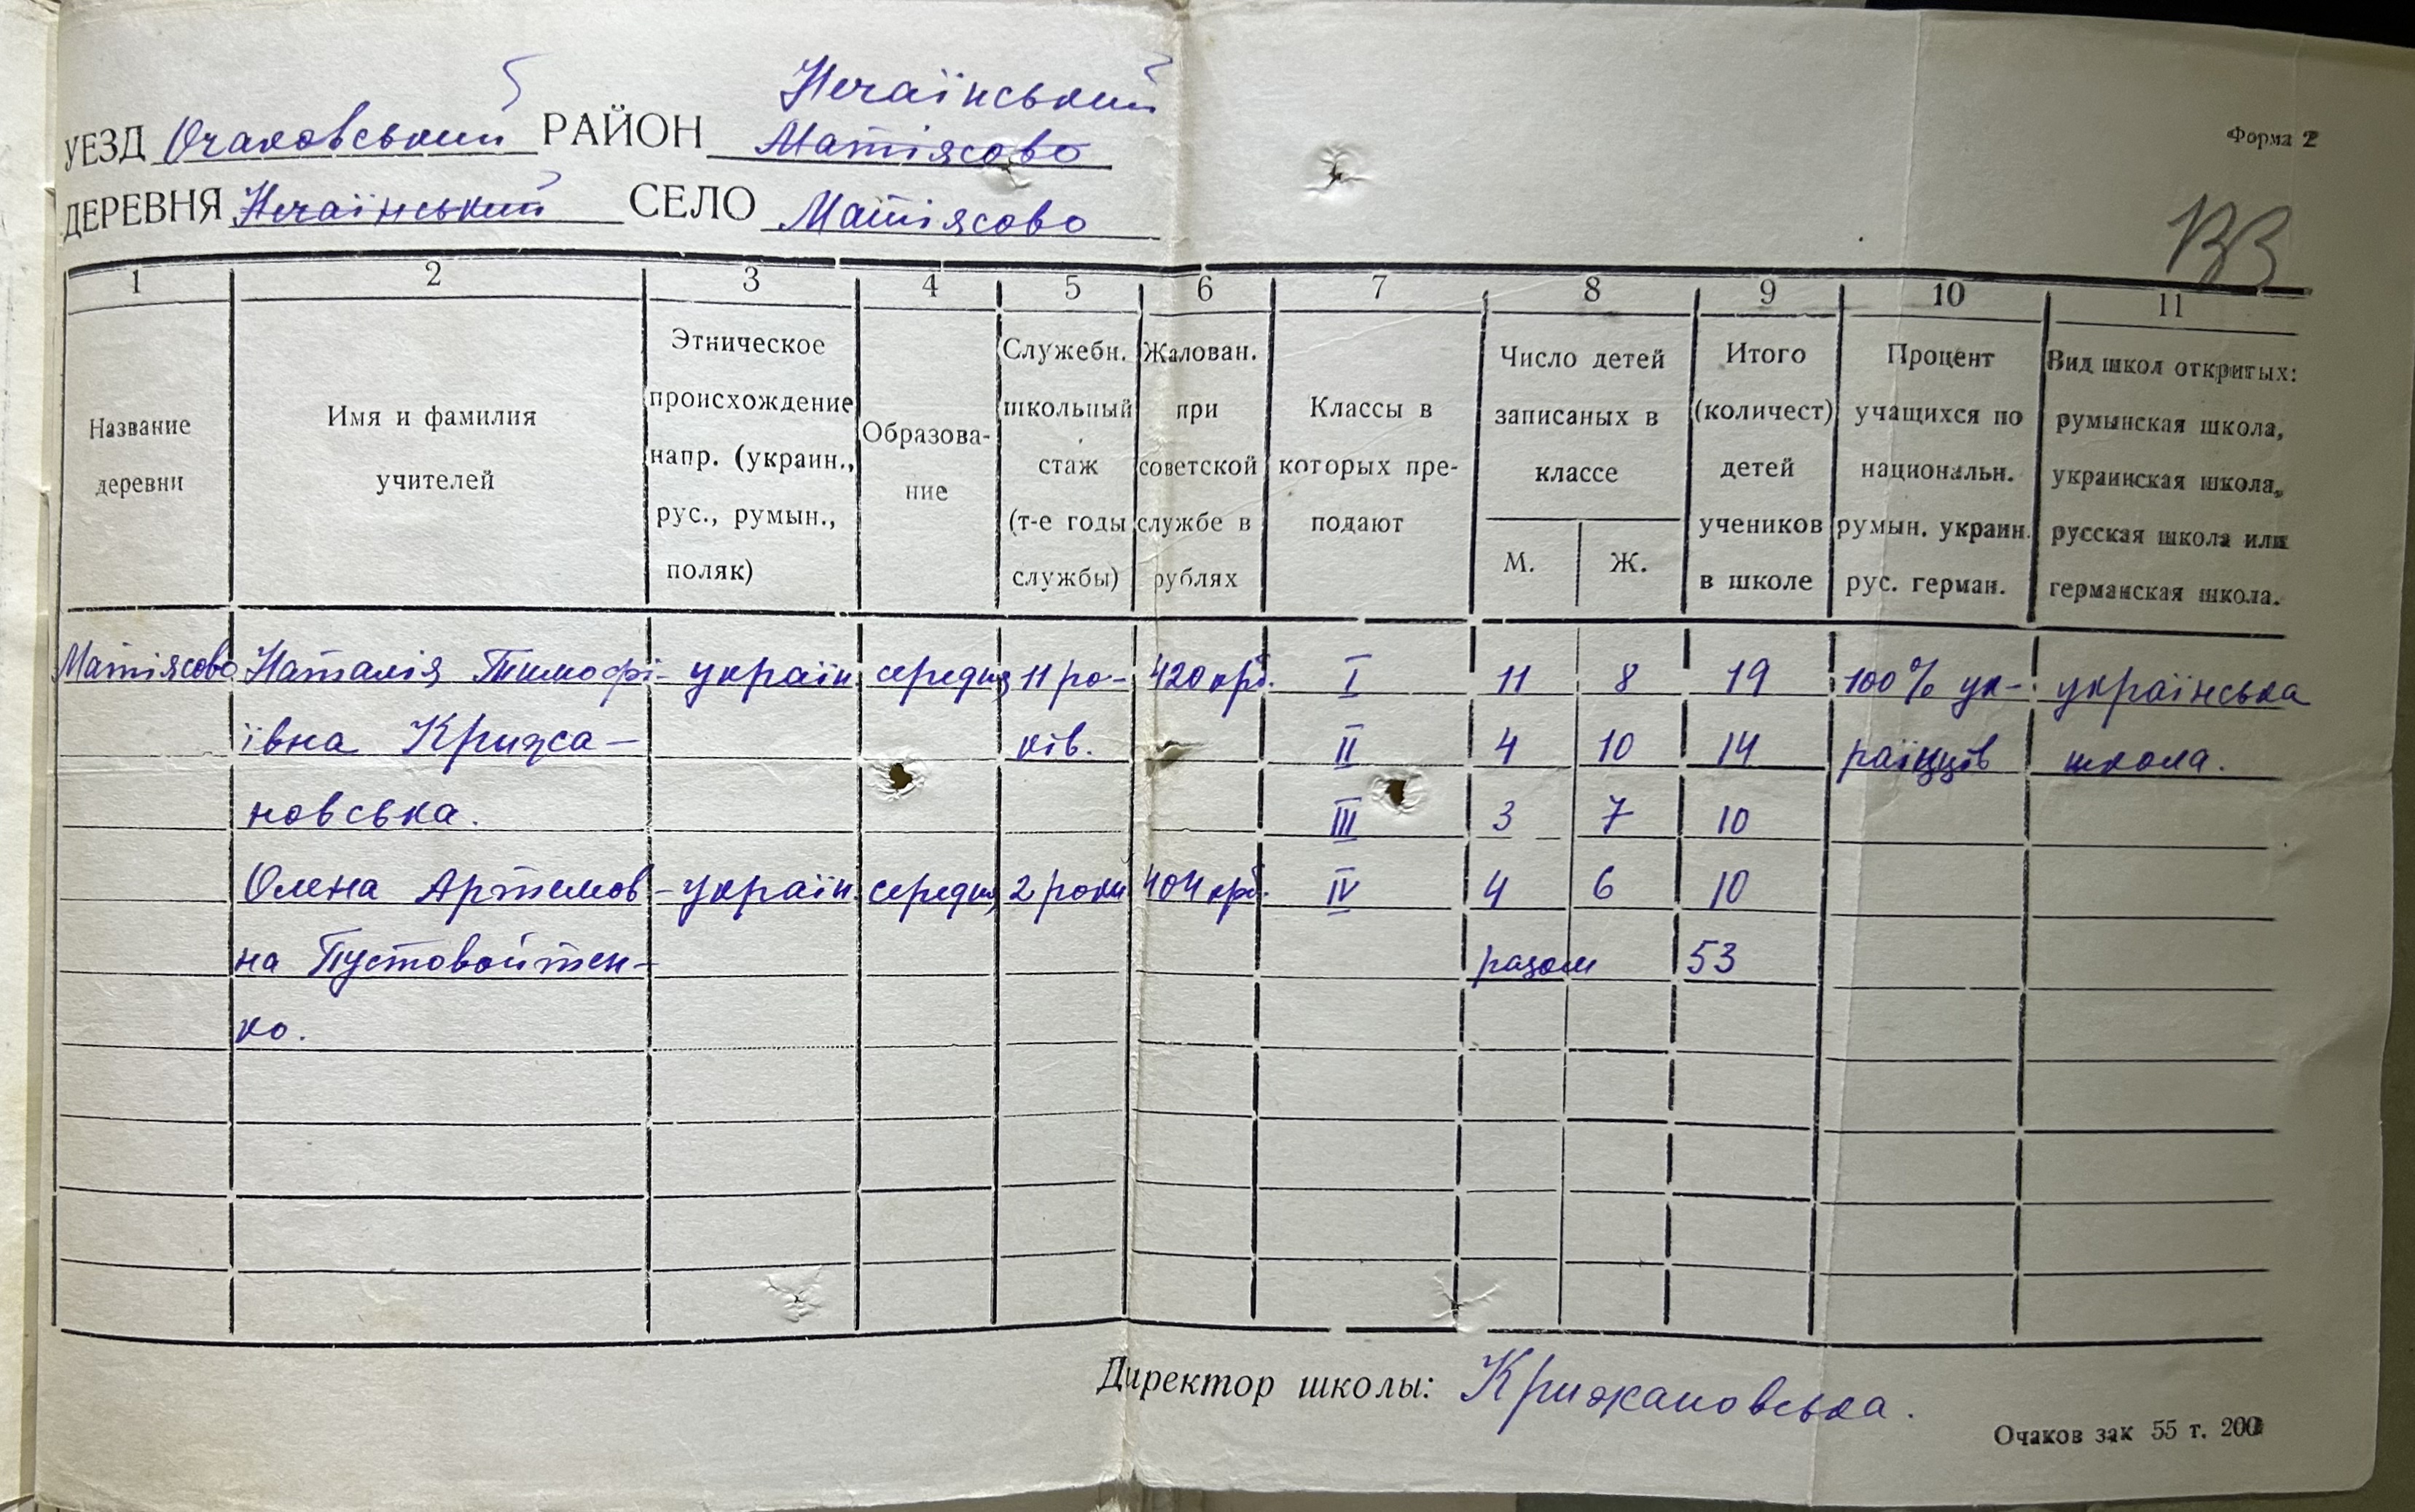 Форма 2
Нечаїнський
УЕЗД Очаковський РАЙОН Матіясово
ДЕРЕВНЯ Нечаїнський СЕЛО Матіясово
1 2 3 4 5 6 7 8 9 10 11
Название деревни
Имя и фамилия учителей
Этническое происхождение напр. (украин., рус., румын., поляк)
Образова-ние
Служебн. школьный стаж (т-е годы службы)
Жалован. при советской службе в рублях
Классы в которых пре-подают
Число детей записаных в классе
М. Ж.
Итого (количест) детей учеников в школе
Процент учащихся по национальн. румын. украин. рус. герман.
Вид школ откритых: румынская школа, украинская школа, русская школа или германская школа.
Матіясово Наталія Тимофі- україн. середня 11 ро- 420 крб. I 11 8 19 100% ук- українська
ївна Крижа- ків. II 4 10 14 раїнців школа.
новська. III 3 7 10
Олена Артемов- україн. середня 2 роки 404 крб. IV 4 6 10
на Пустовойтен- разом 53
ко.
Директор школы: Крижановська.
Очаков зак 55 т. 200